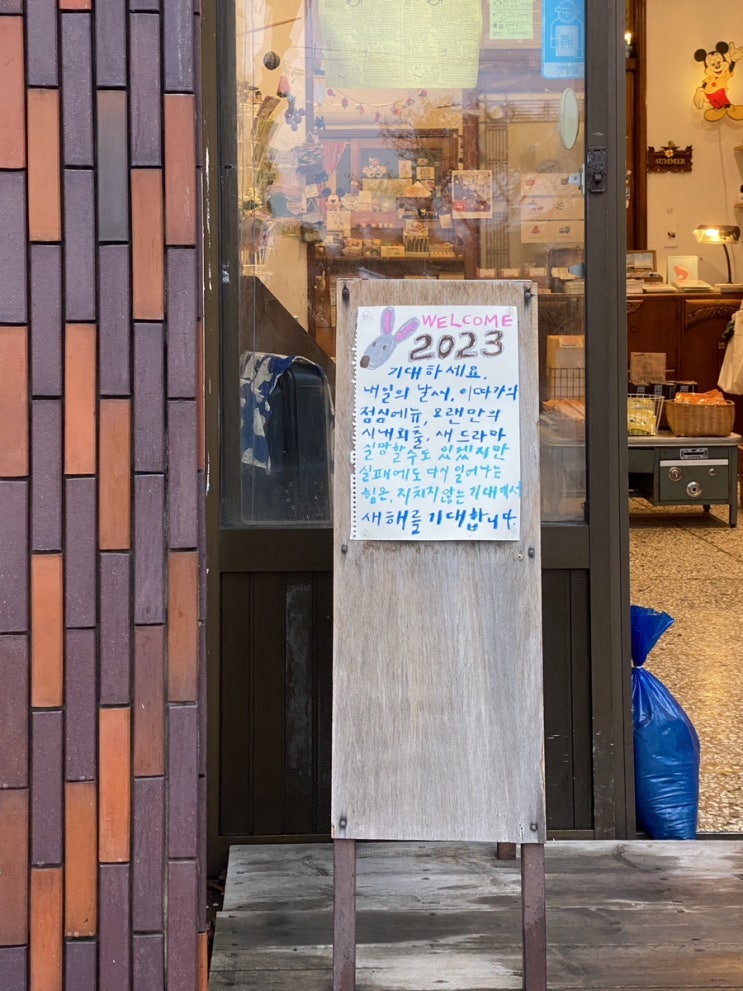 WELCOME
2023
기대하세요.
내일의 날씨, 이따가의
점심메뉴, 오랜만의
시내외출, 새 드라마
실망할수도 있겠지만
실패에도 다시 일어나는
힘은, 지치지 않는 기대에서
새해를 기대합니다.
SUMMER